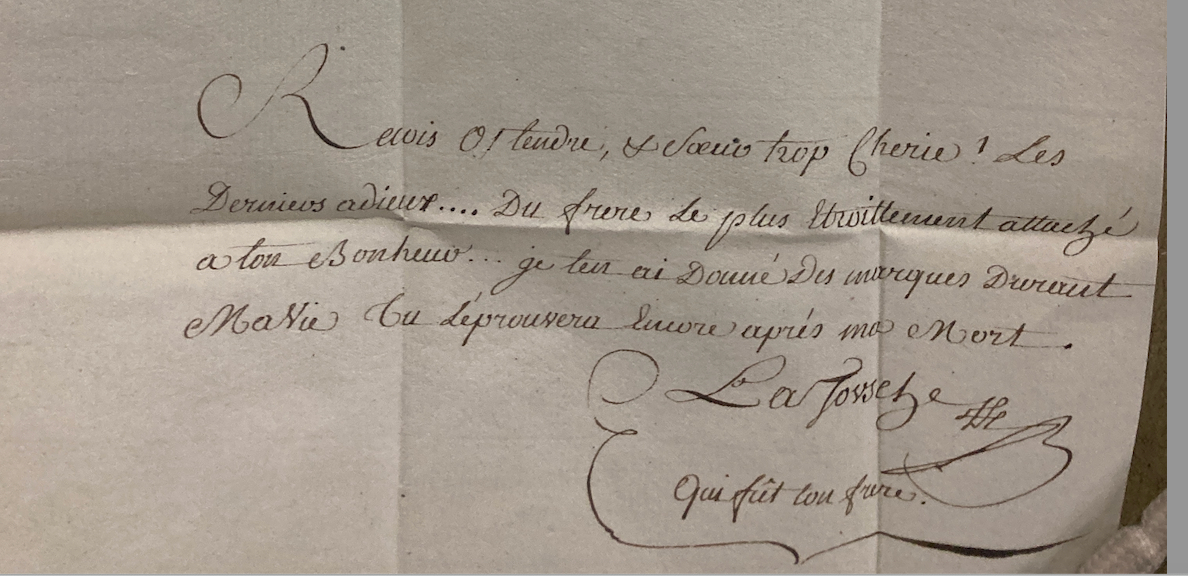 Recois O! tendre, & Sœur trop Cherie! Les
Derniers adieux.... Du frere Le plus Etroittement attaché
a ton Bonheur... je ten ai Donné Des marques Durant
Ma Vie Tu L'éprouvera Encore aprés ma Mort.
La
Qui fût ton frere.